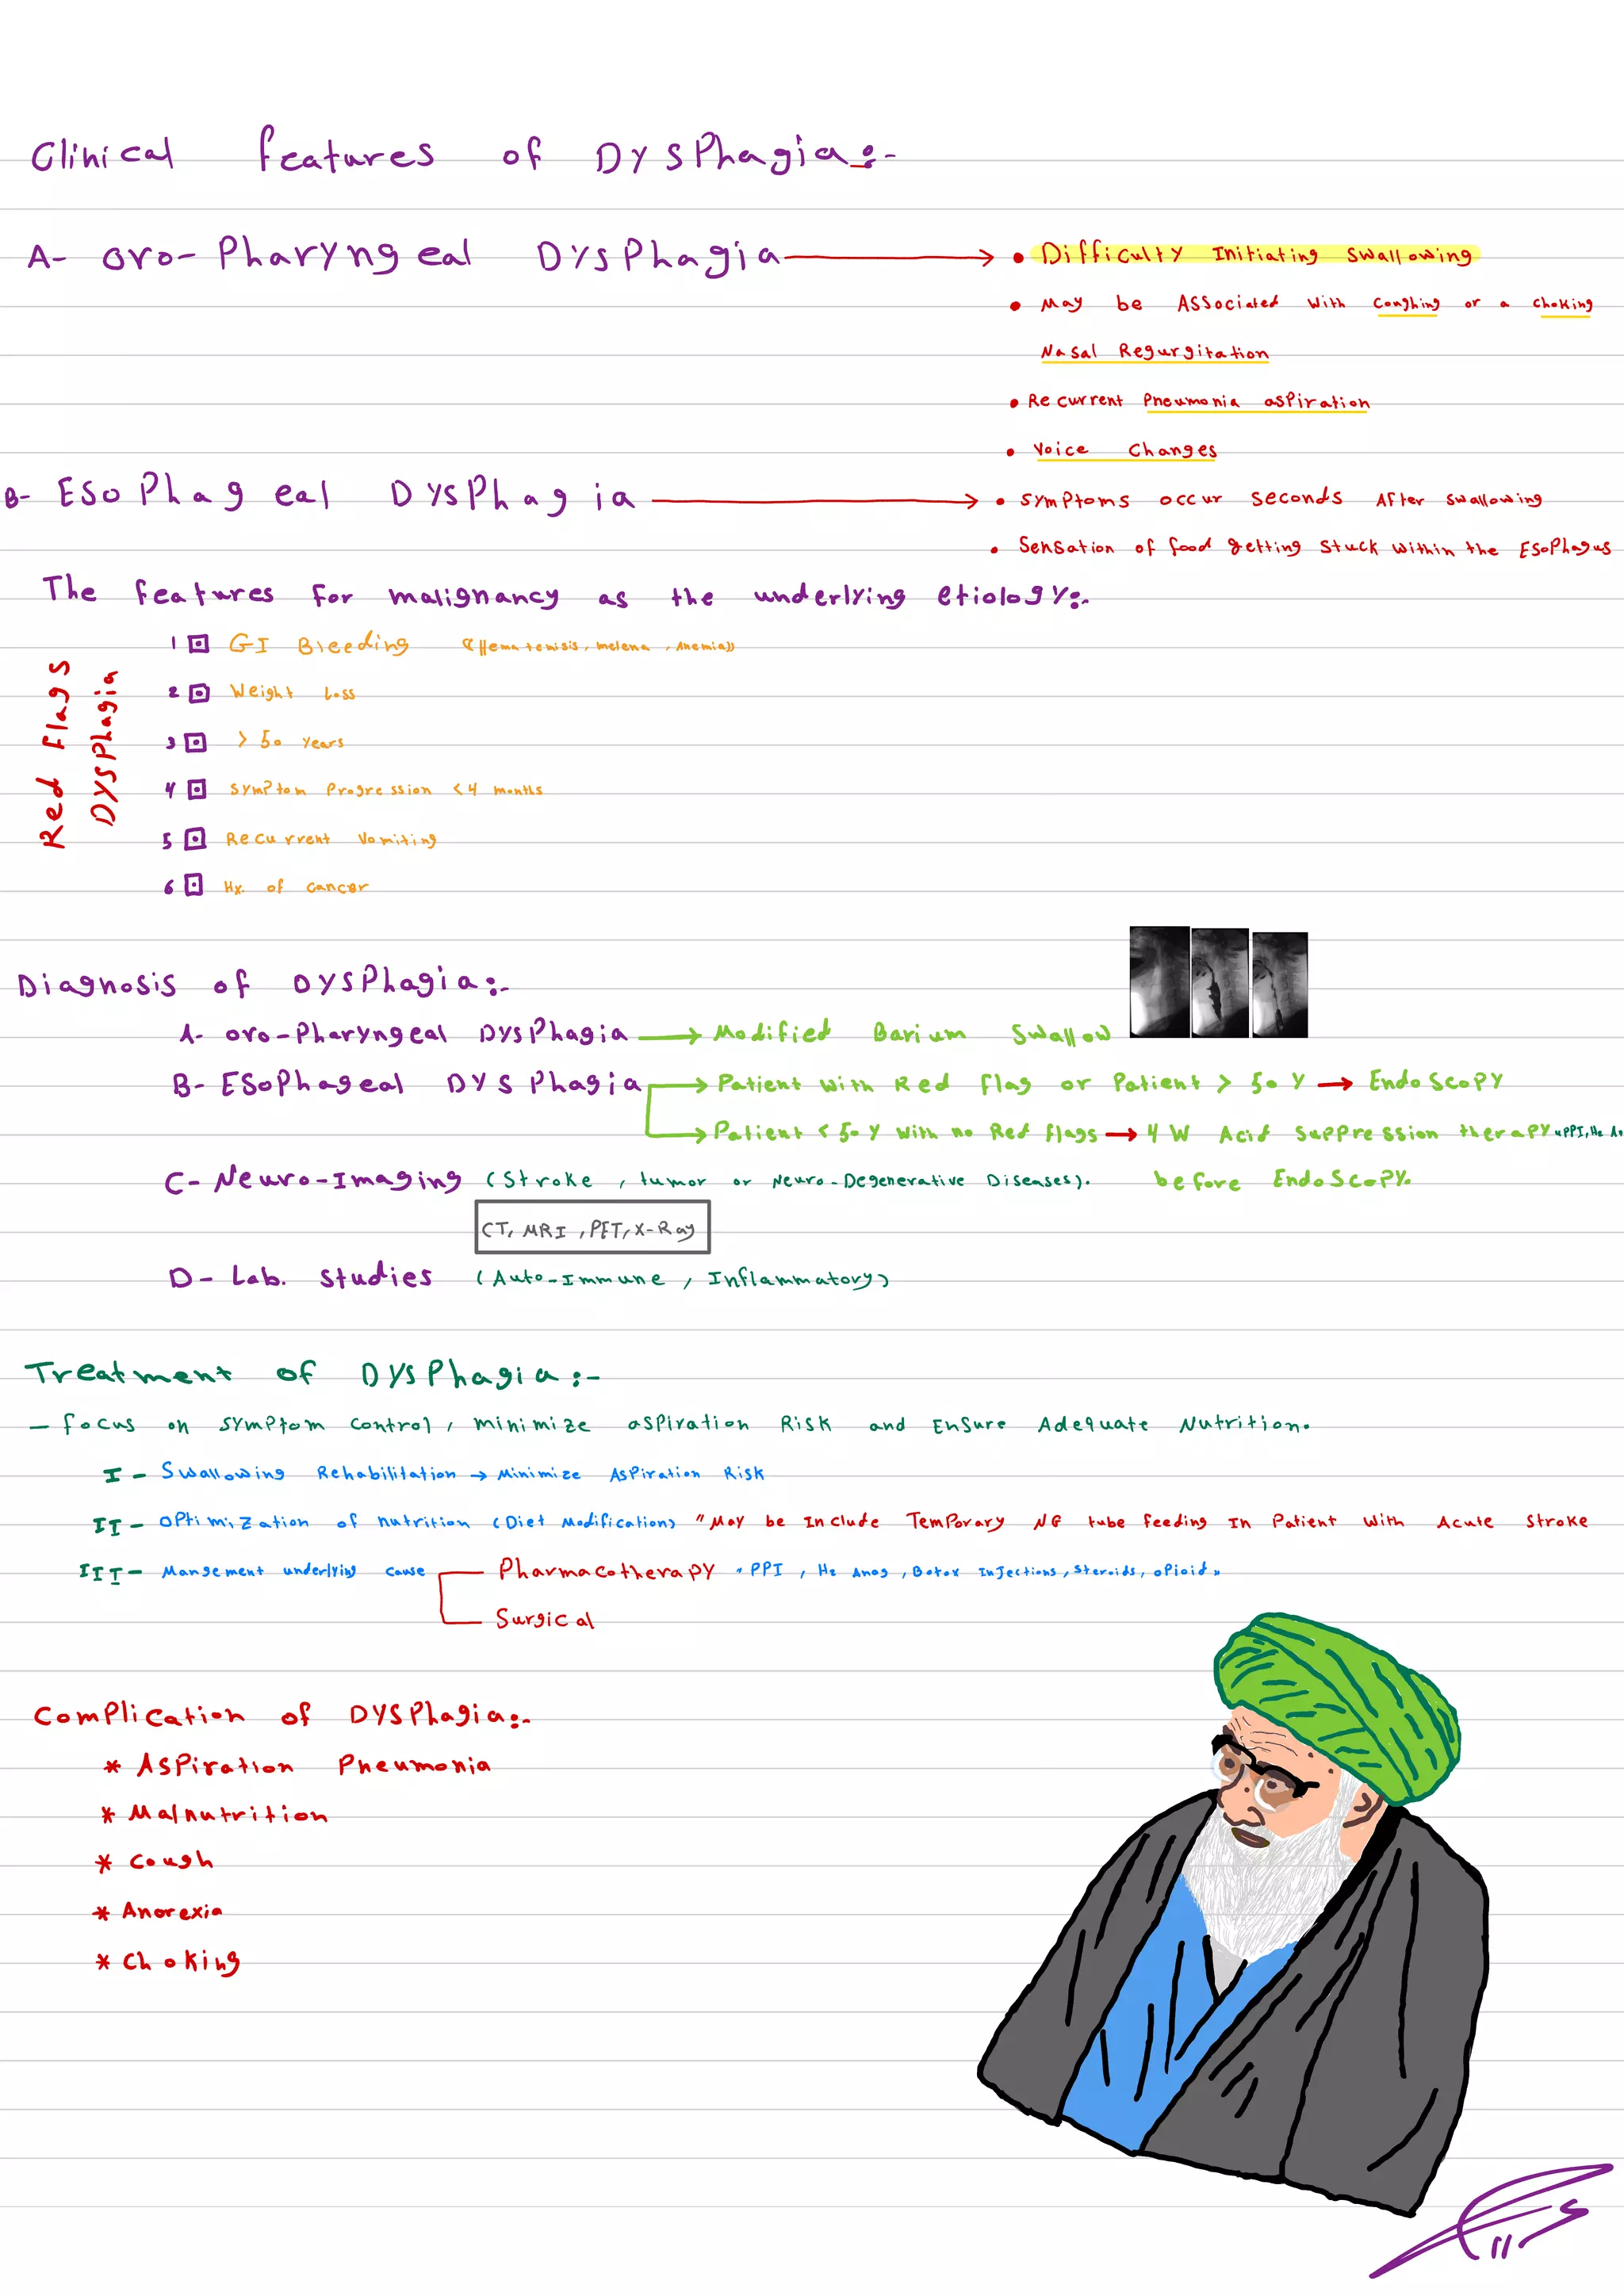 Clinical features of Dysphagia:-
A- oro-Pharyngeal Dysphagia → • Difficulty Initiating Swallowing
• May be Associated with Coughing or a choking
Nasal Regurgitation
• Recurrent Pneumonia aspiration
• Voice Changes
B- Esophageal Dysphagia → • Symptoms occur seconds After swallowing
• Sensation of food getting stuck within the Esophagus
The features for malignancy as the underlying etiology:-
Red Flags
Dysphagia
1 GI Bleeding ((Hematemisis, melena, Anemia))
2 Weight Loss
3 > 50 years
4 Symptom Progression < 4 months
5 Recurrent Vomiting
6 Hx. of cancer
Diagnosis of Dysphagia:-
A- oro-Pharyngeal Dysphagia → Modified Barium Swallow
B- Esophageal Dysphagia → Patient with Red flag or Patient > 50 Y → Endoscopy
→ Patient < 50 Y with no Red flags → 4 W Acid Suppression therapy "PPI, H2 An
before Endoscopy.
C- Neuro-Imaging (Stroke, tumor or Neuro-Degenerative Diseases).
CT, MRI, PET, X-Ray
D- Lab. studies (Auto-Immune, Inflammatory)
Treatment of Dysphagia:-
- focus on symptom control, minimize aspiration Risk and Ensure Adequate Nutrition.
I- Swallowing Rehabilitation → Minimize Aspiration Risk
II- Optimization of nutrition (Diet Modification) "May be Include Temporary NG tube feeding In Patient with Acute Stroke
III- Mangement underlying cause Pharmacotherapy "PPI, H2 Anag, Botox Injections, Steroids, opioid"
Surgical
Complication of Dysphagia:-
* Aspiration Pneumonia
* Malnutrition
* Cough
* Anorexia
* Choking